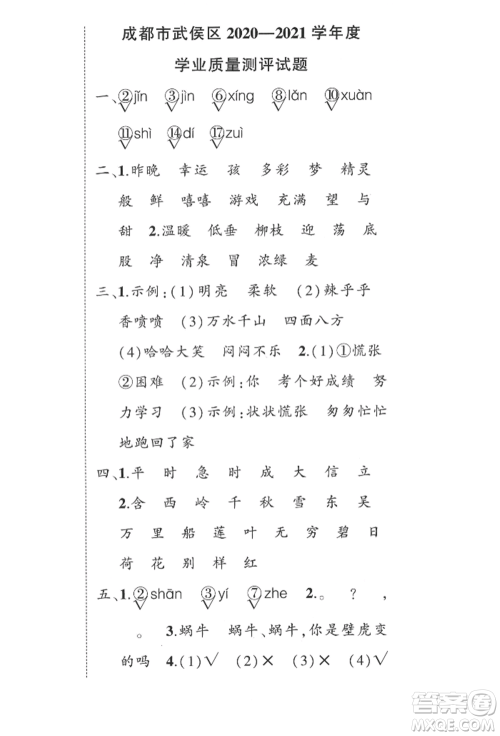 成都市武侯区 2020—2021 学年度
学业质量测评试题
一、②jǐn ③jìn ⑥xíng ⑧lǎn ⑩xuàn
⑪shì ⑭dí ⑰zuì
二、1.昨晚 幸运 孩 多彩 梦 精灵
般 鲜 嘻嘻 游戏 充满 望 与
甜 2.温暖 低垂 柳枝 迎 荡 底
股 净 清泉 冒 浓绿 麦
三、1.示例:(1)明亮 柔软 (2)辣乎乎
香喷喷 (3)万水千山 四面八方
(4)哈哈大笑 闷闷不乐 2.(1)①慌张
②困难 (2)示例:你 考个好成绩 努
力学习 (3)示例:状状慌张 匆匆忙忙
地跑回了家
四、1.平 时 急 时 成 大 信 立
2.含 西 岭 千 秋 雪 东 吴
万 里 船 莲 叶 无 穷 碧 日
荷 花 别 样 红
五、1.②shān ③yí ⑦zhe 2.。 ? ?
。 3.蜗牛 蜗牛、蜗牛,你是壁虎变
的吗 4.(1)√ (2)× (3)× (4)√
作业帮答案